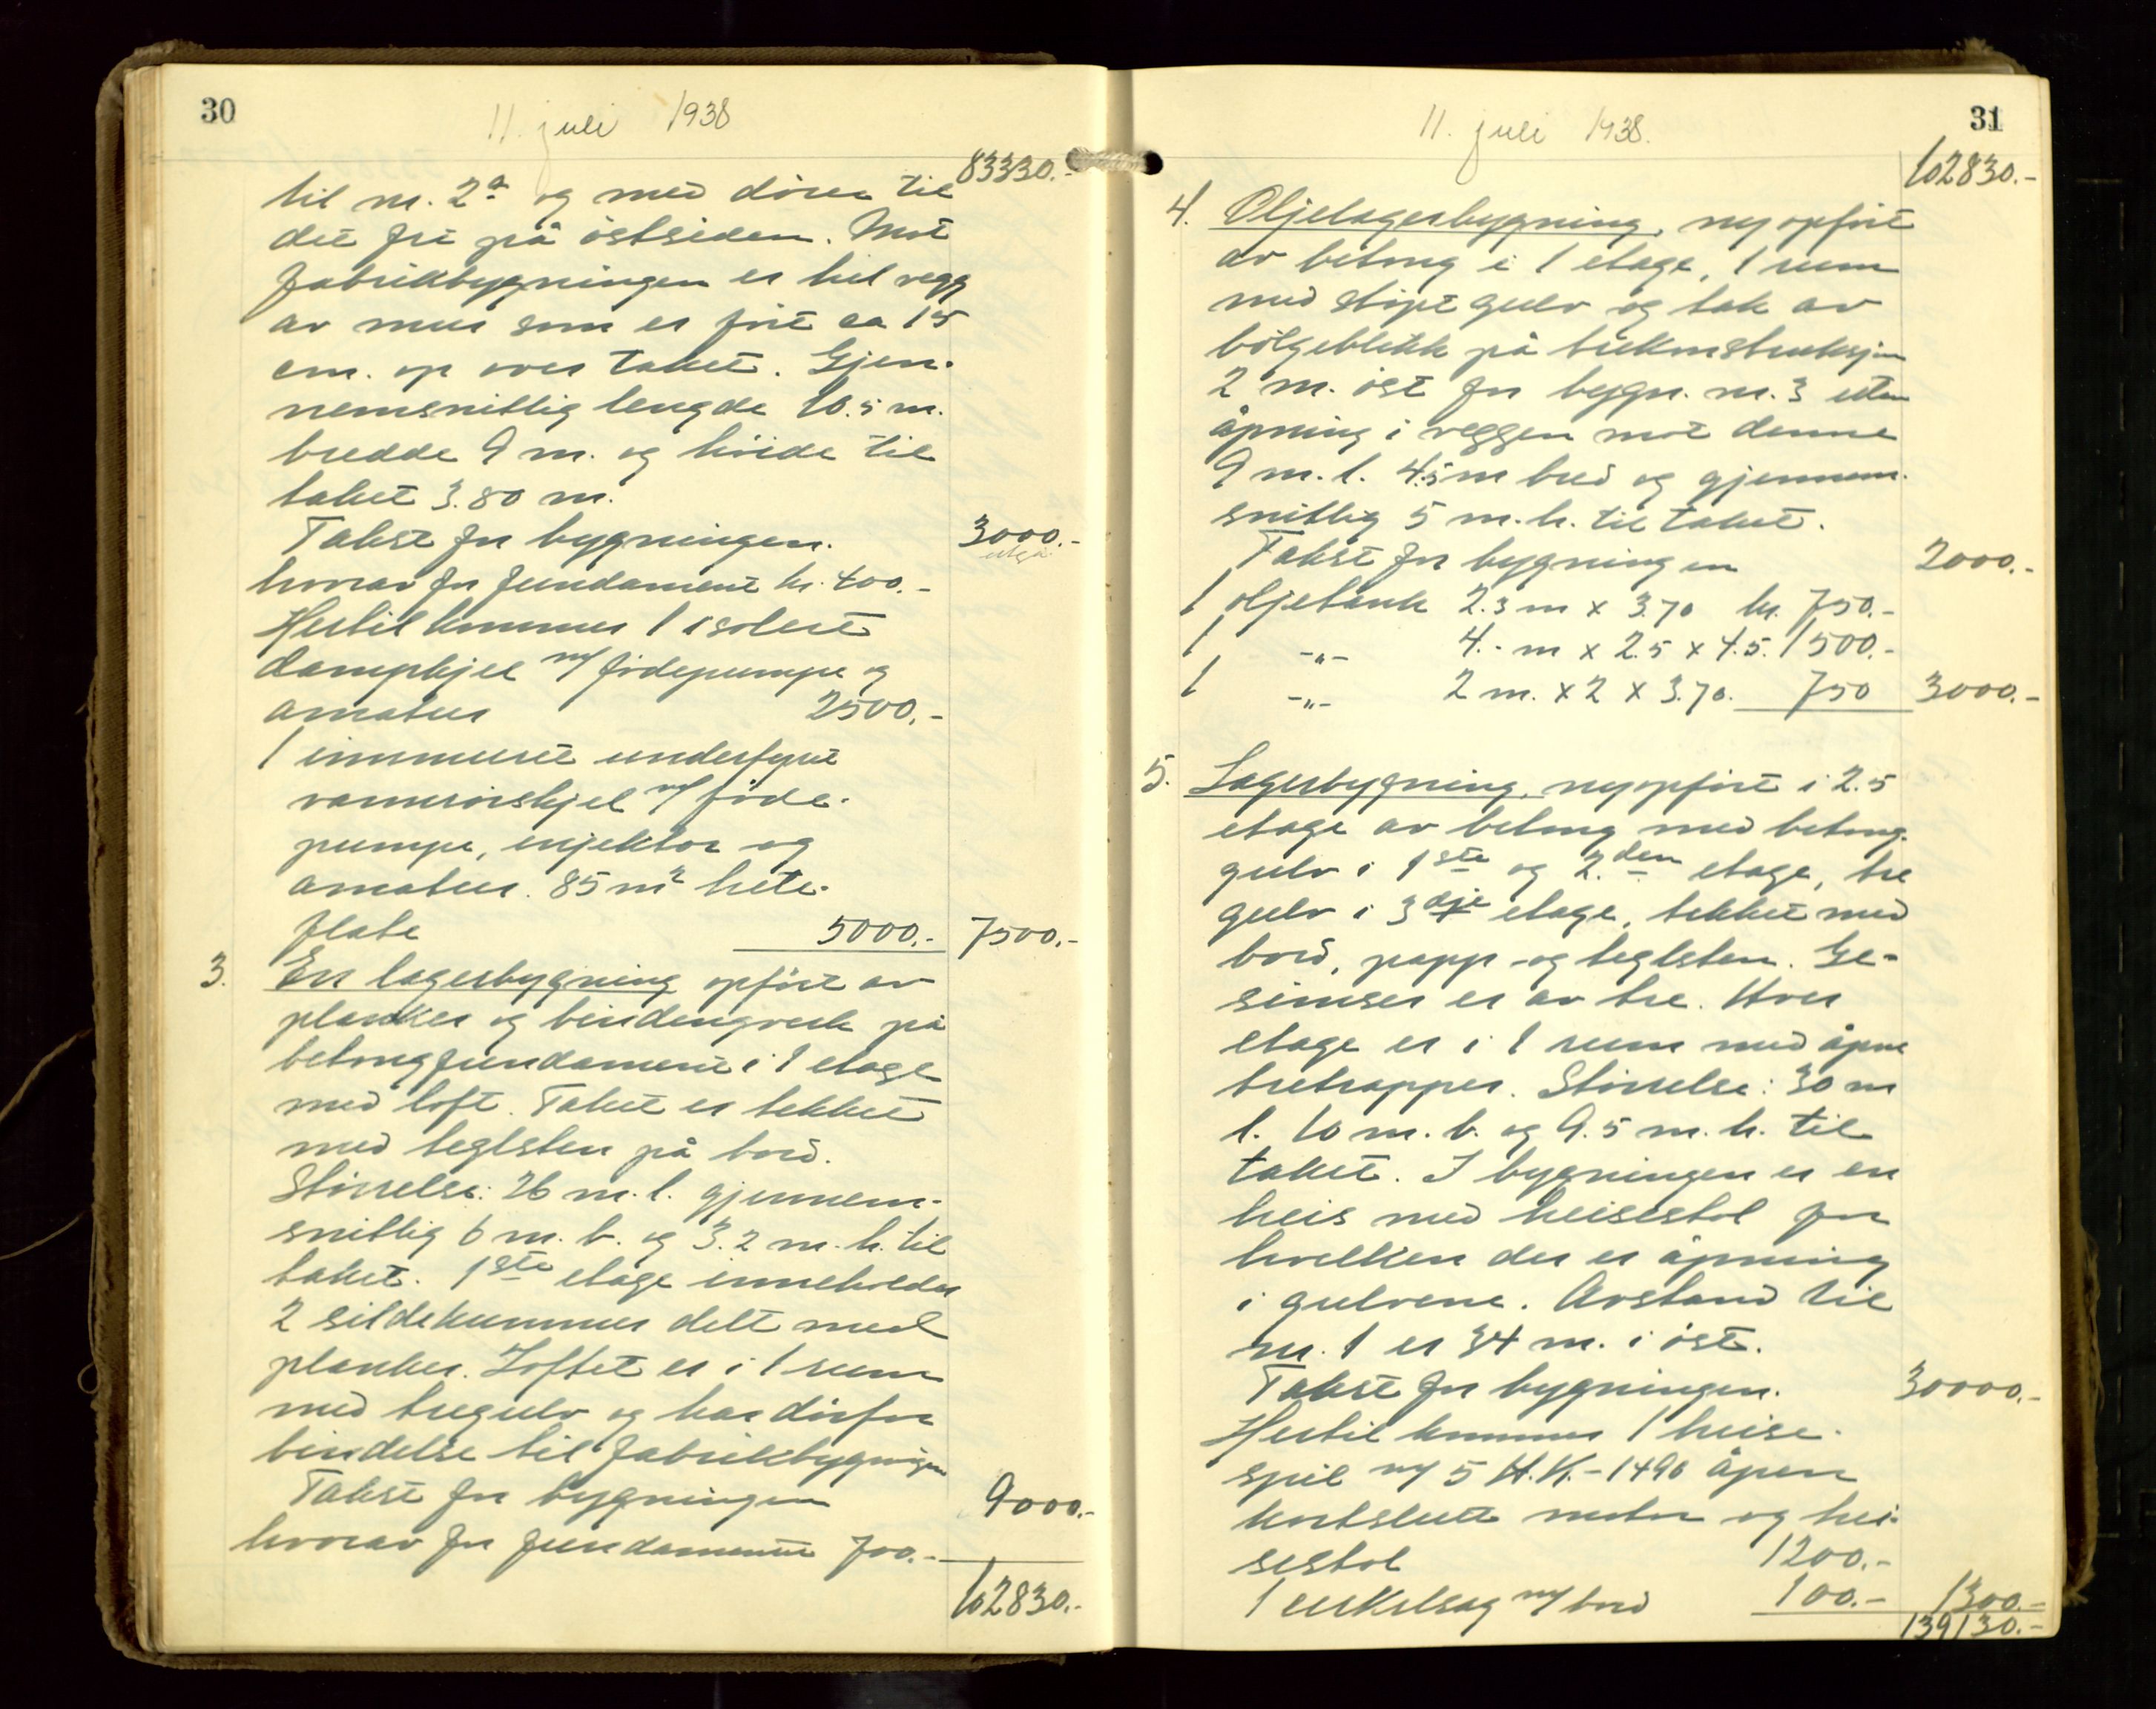 30
11. juli 1938
83330.-
til nr. 2a og med dører til
det fri på østsiden. Mot
fabrikbygningen er hel vegg
av mur som er ført ca 15
cm. op over taket. Gjen-
nemsnitlig lengde 10.5 m.
bredde 9 m. og høide til
taket 3.80 m.
Takst for bygningen. 3000.-
utgår
hvorav for fundament kr. 400.-
Hertil kommer 1 isolert
dampkjel m/ fødepumpe og
armatur 2500.-
1 innmuret underfyrt
vannrørskjel m/ føde-
pumpe, injektor og
armatur. 85 m2 hete-
flate 5000.- 7500.-
3. En lagerbygning opført av
planker og bindingverk på
betongfundament i 1 etage
med loft. Taket er tekket
med teglsten på bord.
Størrelse: 26 m. l. gjennem-
snitlig 6 m. b. og 3.2 m. h. til
taket. 1ste etage inneholder
2 sildekummer delt med
planker. Loftet er i 1 rum
med tregulv og har dørfor
bindelse til fabrikbygningen
Takst for bygningen 9000.-
hvorav for fundamentet 700.-
102830.-
31
11. juli 1938.
102830.-
4. Oljelagerbygning, ny opført
av betong i 1 etage, 1 rum
med støpt gulv og tak av
bølgeblikk på trekonstruksjon
2 m. øst for bygn. nr. 3 uten
åpning i veggen mot denne
9 m. l. 4.5 m bred og gjennem-
snitlig 5 m. h. til taket.
Takst for bygningen 2000.-
1 oljetank 2.3 m x 3.70 kr. 750.-
1 -"- 4.- m x 2.5 x 4.5. 1500.-
1 -"- 2 m. x 2 x 3.70. 750 3000.-
5. Lagerbygning, nyopført i 2.5
etage av betong med betong-
gulv i 1ste og 2.den etage, tre
gulv i 3dje etage, tekket med
bord, papp og teglsten. Ge-
simser er av tre. Hver
etage er i 1 rum med åpne
tretrapper. Størrelse: 30 m
l. 10 m. b. og 9.5 m. h. til
taket. I bygningen er en
heis med heisestol for
hvilken der er åpning
i gulvene. Avstand til
nr. 1 er 34 m. i øst.
Takst for bygningen. 30000.-
Hertil kommer 1 heise-
spil m/ 5 H.K. - 1490 åpen
kortslutt motor og hei-
sestol 1200.-
1 cirkelsag m/ bord 100.- 1300.-
139130.-